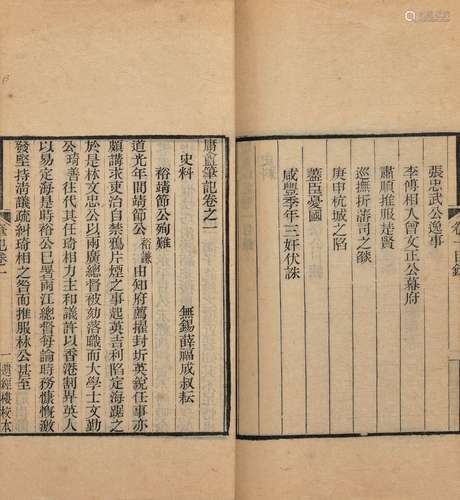 卷一目錄
張忠武公逸事
李傅相入曾文正公幕府
肅順推服楚賢
巡撫折藩司之燄
庚申杭城之陷
藎臣憂國
咸豐季年三奸伏誅
庸盦筆記卷之一
史料
無錫薛福成叔耘
裕靖節公殉難
道光年間靖節公裕謙由知府薦擢封圻英銳任事亦
頗講求吏治自禁鴉片煙之事起英吉利陷定海躪之
於是林文忠公以兩廣總督被劾落職而大學士文勤
公琦善往代其任琦相力主和議許以香港割界英人
以易定海是時裕公已署兩江總督每論時務慷慨激
發堅持清議疏糾琦相之咎而推服林公甚至
筆記卷一
一
遺經樓校本